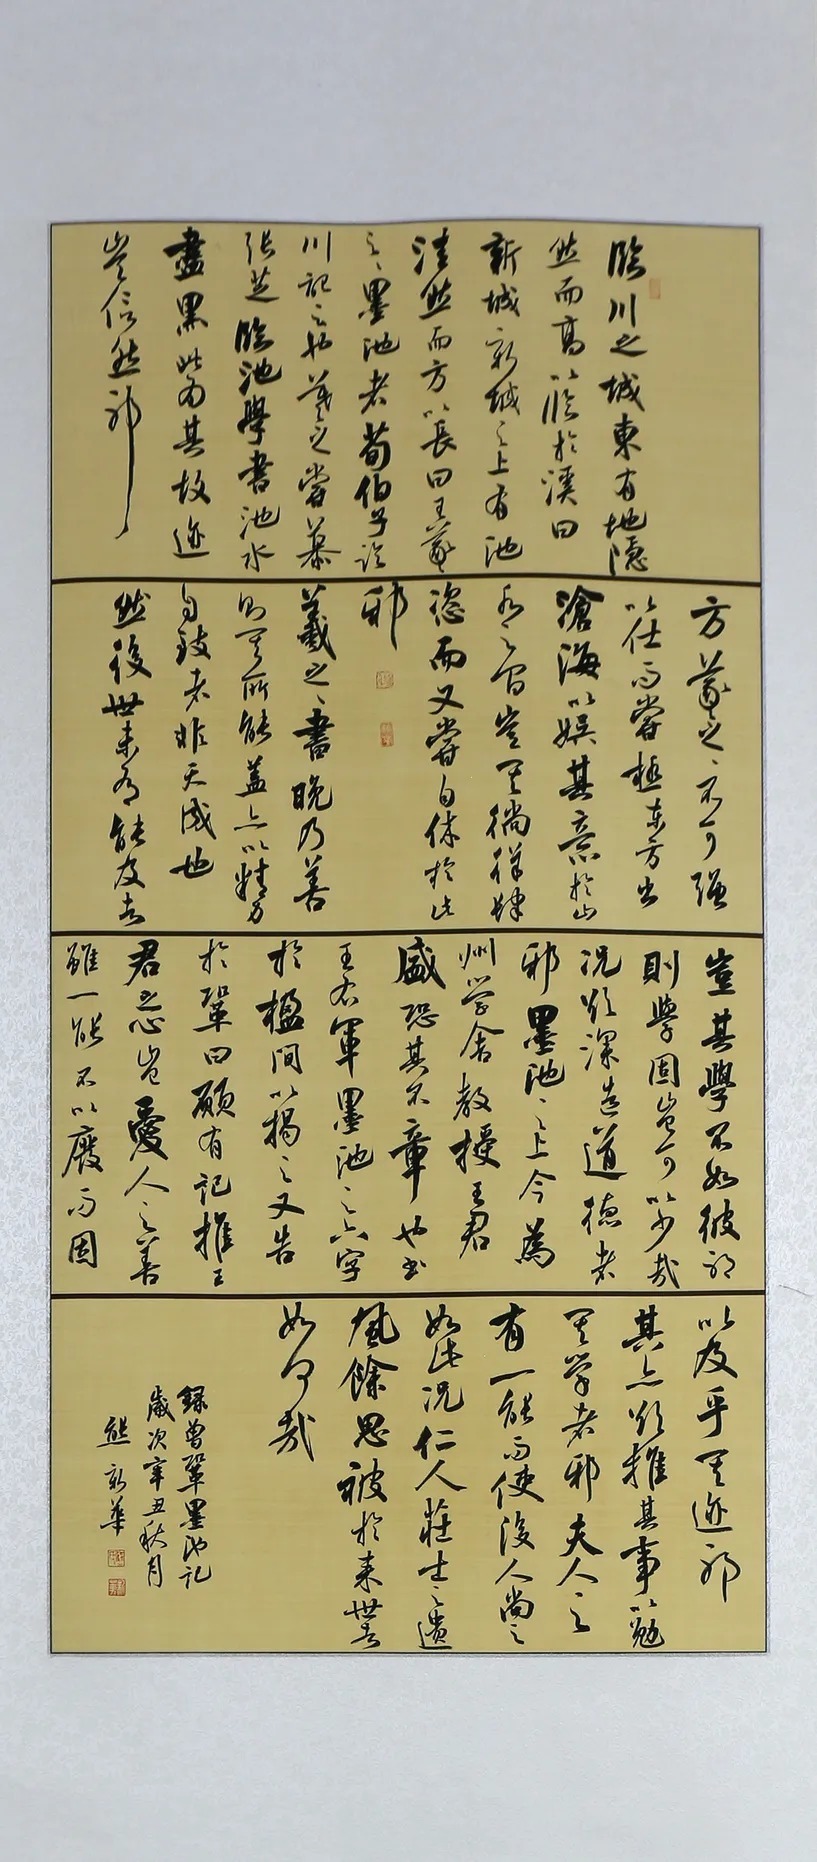 臨川之城東有地隱
然而高以臨於溪曰
新城新城之上有池
洼然而方以長曰王羲
之之墨池者荀伯子臨
川記云也羲之嘗慕
張芝臨池學書池水
盡黑此為其故迹
豈信然邪
方羲之之不可強
以仕而嘗極東方出
滄海以娱其意於山
水之間豈其徜徉肆
恣而又嘗自休於此
邪
羲之之書晚乃善
則其所能蓋亦以精力
自致者非天成也
然後世未有能及者
豈其學不如彼邪
則學固豈可以少哉
况欲深造道德者
邪墨池之上今為
州學舍教授王君
盛恐其不章也書
王右軍墨池之六字
於楹間以揭之又告
於鞏曰願有記推王
君之心豈愛人之善
雖一能不以廢而因
以及乎其迹邪
其亦欲推其事以勉
其學者邪夫人之
有一能而使後人尚之
如此况仁人莊士之遺
風餘思被於来世者
如何哉
録曾鞏墨池記
歲次辛丑秋月
熊新華